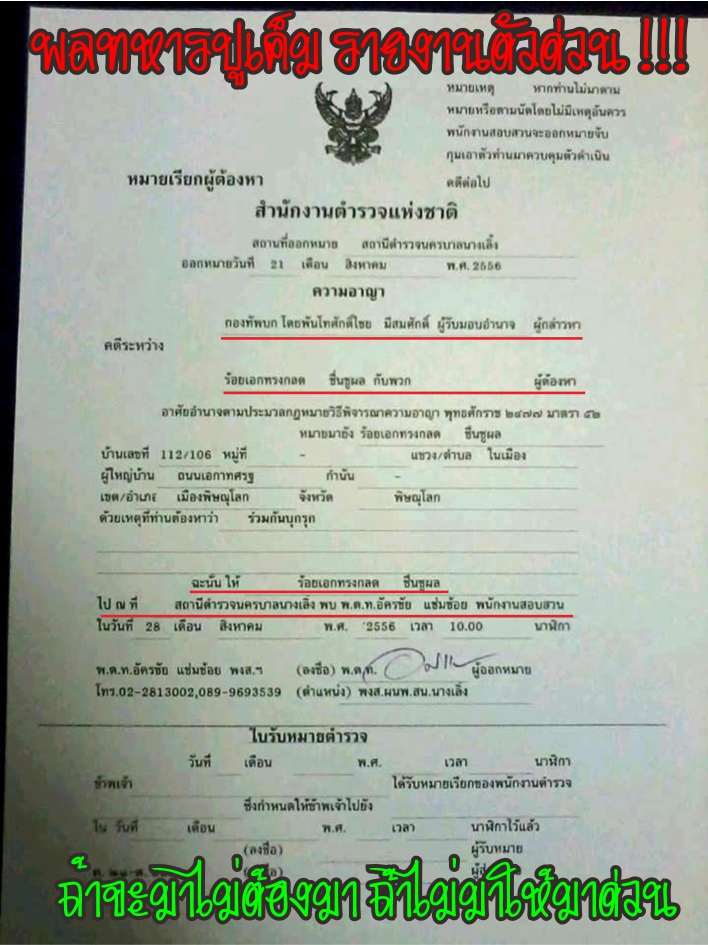 พลทหารปูเค็ม รายงานตัวด่วน !!!
หมายเหตุ หากท่านไม่มาตาม
หมายหรือตามนัดโดยไม่มีเหตุอันควร
พนักงานสอบสวนจะออกหมายจับ
กุมเอาตัวท่านมาควบคุมตัวดำเนิน
คดีต่อไป
หมายเรียกผู้ต้องหา
สำนักงานตำรวจแห่งชาติ
สถานที่ออกหมาย สถานีตำรวจนครบาลนางเลิ้ง
ออกหมายวันที่ 21 เดือน สิงหาคม พ.ศ. 2556
ความอาญา
กองทัพบก โดยพันโทศักดิ์ไชย มีสมศักดิ์ ผู้รับมอบอำนาจ ผู้กล่าวหา
คดีระหว่าง
ร้อยเอกทรงกลด ชื่นชูผล กับพวก ผู้ต้องหา
อาศัยอำนาจตามประมวลกฎหมายวิธีพิจารณาความอาญา พุทธศักราช ๒๔๗๗ มาตรา ๕๒
หมายมายัง ร้อยเอกทรงกลด ชื่นชูผล
บ้านเลขที่ 112/106 หมู่ที่ - แขวง/ตำบล ในเมือง
ผู้ใหญ่บ้าน ถนนเอกาทศรฐ กำนัน -
เขต/อำเภอ เมืองพิษณุโลก จังหวัด พิษณุโลก
ด้วยเหตุที่ท่านต้องหาว่า ร่วมกันบุกรุก
ฉะนั้น ให้ ร้อยเอกทรงกลด ชื่นชูผล
ไป ณ ที่ สถานีตำรวจนครบาลนางเลิ้ง พบ พ.ต.ท.อัครชัย แช่มช้อย พนักงานสอบสวน
ในวันที่ 28 เดือน สิงหาคม พ.ศ. 2556 เวลา 10.00 นาฬิกา
พ.ต.ท.อัครชัย แช่มช้อย พงส.ฯ (ลงชื่อ) พ.ต.ท. ผู้ออกหมาย
โทร.02-2813002,089-9693539 (ตำแหน่ง) พงส.ผนพ.สน.นางเลิ้ง
ใบรับหมายตำรวจ
วันที่ เดือน พ.ศ. เวลา นาฬิกา
ข้าพเจ้า ได้รับหมายเรียกของพนักงานตำรวจ
ซึ่งกำหนดให้ข้าพเจ้าไปยัง
ใน วันที่ เดือน พ.ศ. เวลา นาฬิกาไว้แล้ว
(ลงชื่อ) ผู้รับหมาย
(ลงชื่อ)
ถ้าจะมาไม่ต้องมา ถ้าไม่มาให้มาด่วน